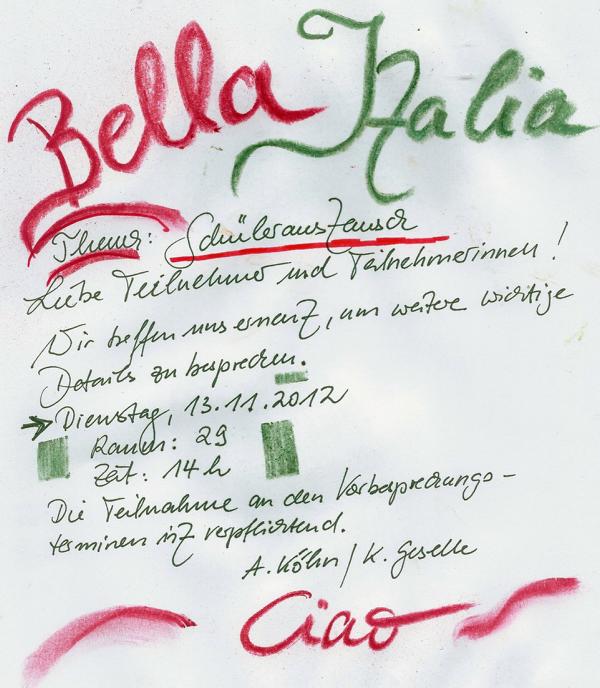 Bella Italia
Thema: Schüleraustausch
Liebe Teilnehmer und Teilnehmerinnen!
Wir treffen uns erneut, um weitere wichtige
Details zu besprechen.
→ Dienstag, 13.11.2012
Raum: 29
Zeit: 14 h
Die Teilnahme an den Vorbesprechungs-
terminen ist verpflichtend.
A. Köhn / K. Geselle
Ciao